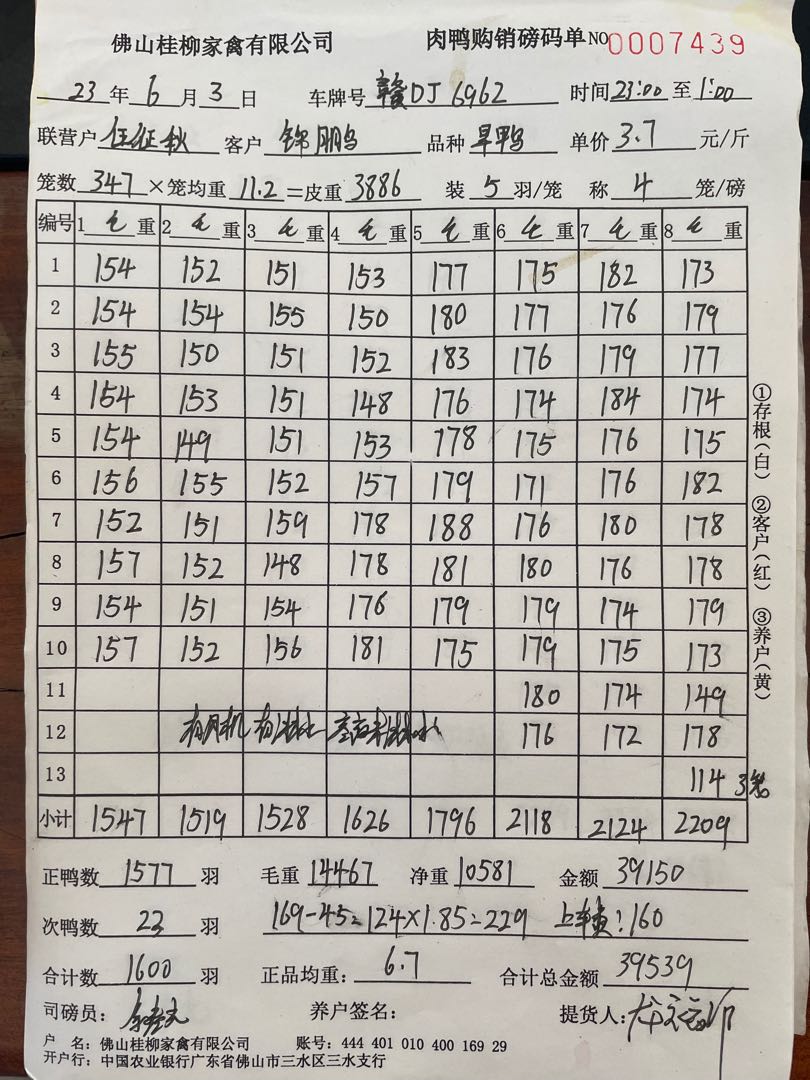 佛山桂柳家禽有限公司 肉鸭购销磅码单 NO 0007439
23 年 6 月 3 日 车牌号 赣DJ6962 时间 23:00 至 1:00
联营户 伍征秋 客户 锦鹏鸟 品种 旱鸭 单价 3.7 元/斤
笼数 347 ×笼均重 11.2 =皮重 3886 装 5 羽/笼 称 4 笼/磅
编号 1 毛 重 2 毛 重 3 毛 重 4 毛 重 5 毛 重 6 毛 重 7 毛 重 8 毛 重
1 154 152 151 153 177 175 182 173
2 154 154 155 150 180 177 176 179
3 155 150 151 152 183 176 179 177
4 154 153 151 148 176 174 184 174
5 154 149 151 153 178 175 176 175
6 156 155 152 157 179 171 176 182
7 152 151 159 178 188 176 180 178
8 157 152 148 178 181 180 176 178
9 154 151 154 176 179 179 174 179
10 157 152 156 181 175 179 175 173
11 180 174 149
12 176 172 178
13 114 3笼
小计 1547 1519 1528 1626 1796 2118 2124 2209
正鸭数 1577 羽 毛重 14467 净重 10581 金额 39150
次鸭数 23 羽 169-45=124×1.85=229 上车费:160
合计数 1600 羽 正品均重: 6.7 合计总金额 39539
司磅员: 养户签名: 提货人:
户 名: 佛山桂柳家禽有限公司 账号: 444 401 010 400 169 29
开户行: 中国农业银行广东省佛山市三水区三水支行
①存根(白) ②客户(红) ③养户(黄)